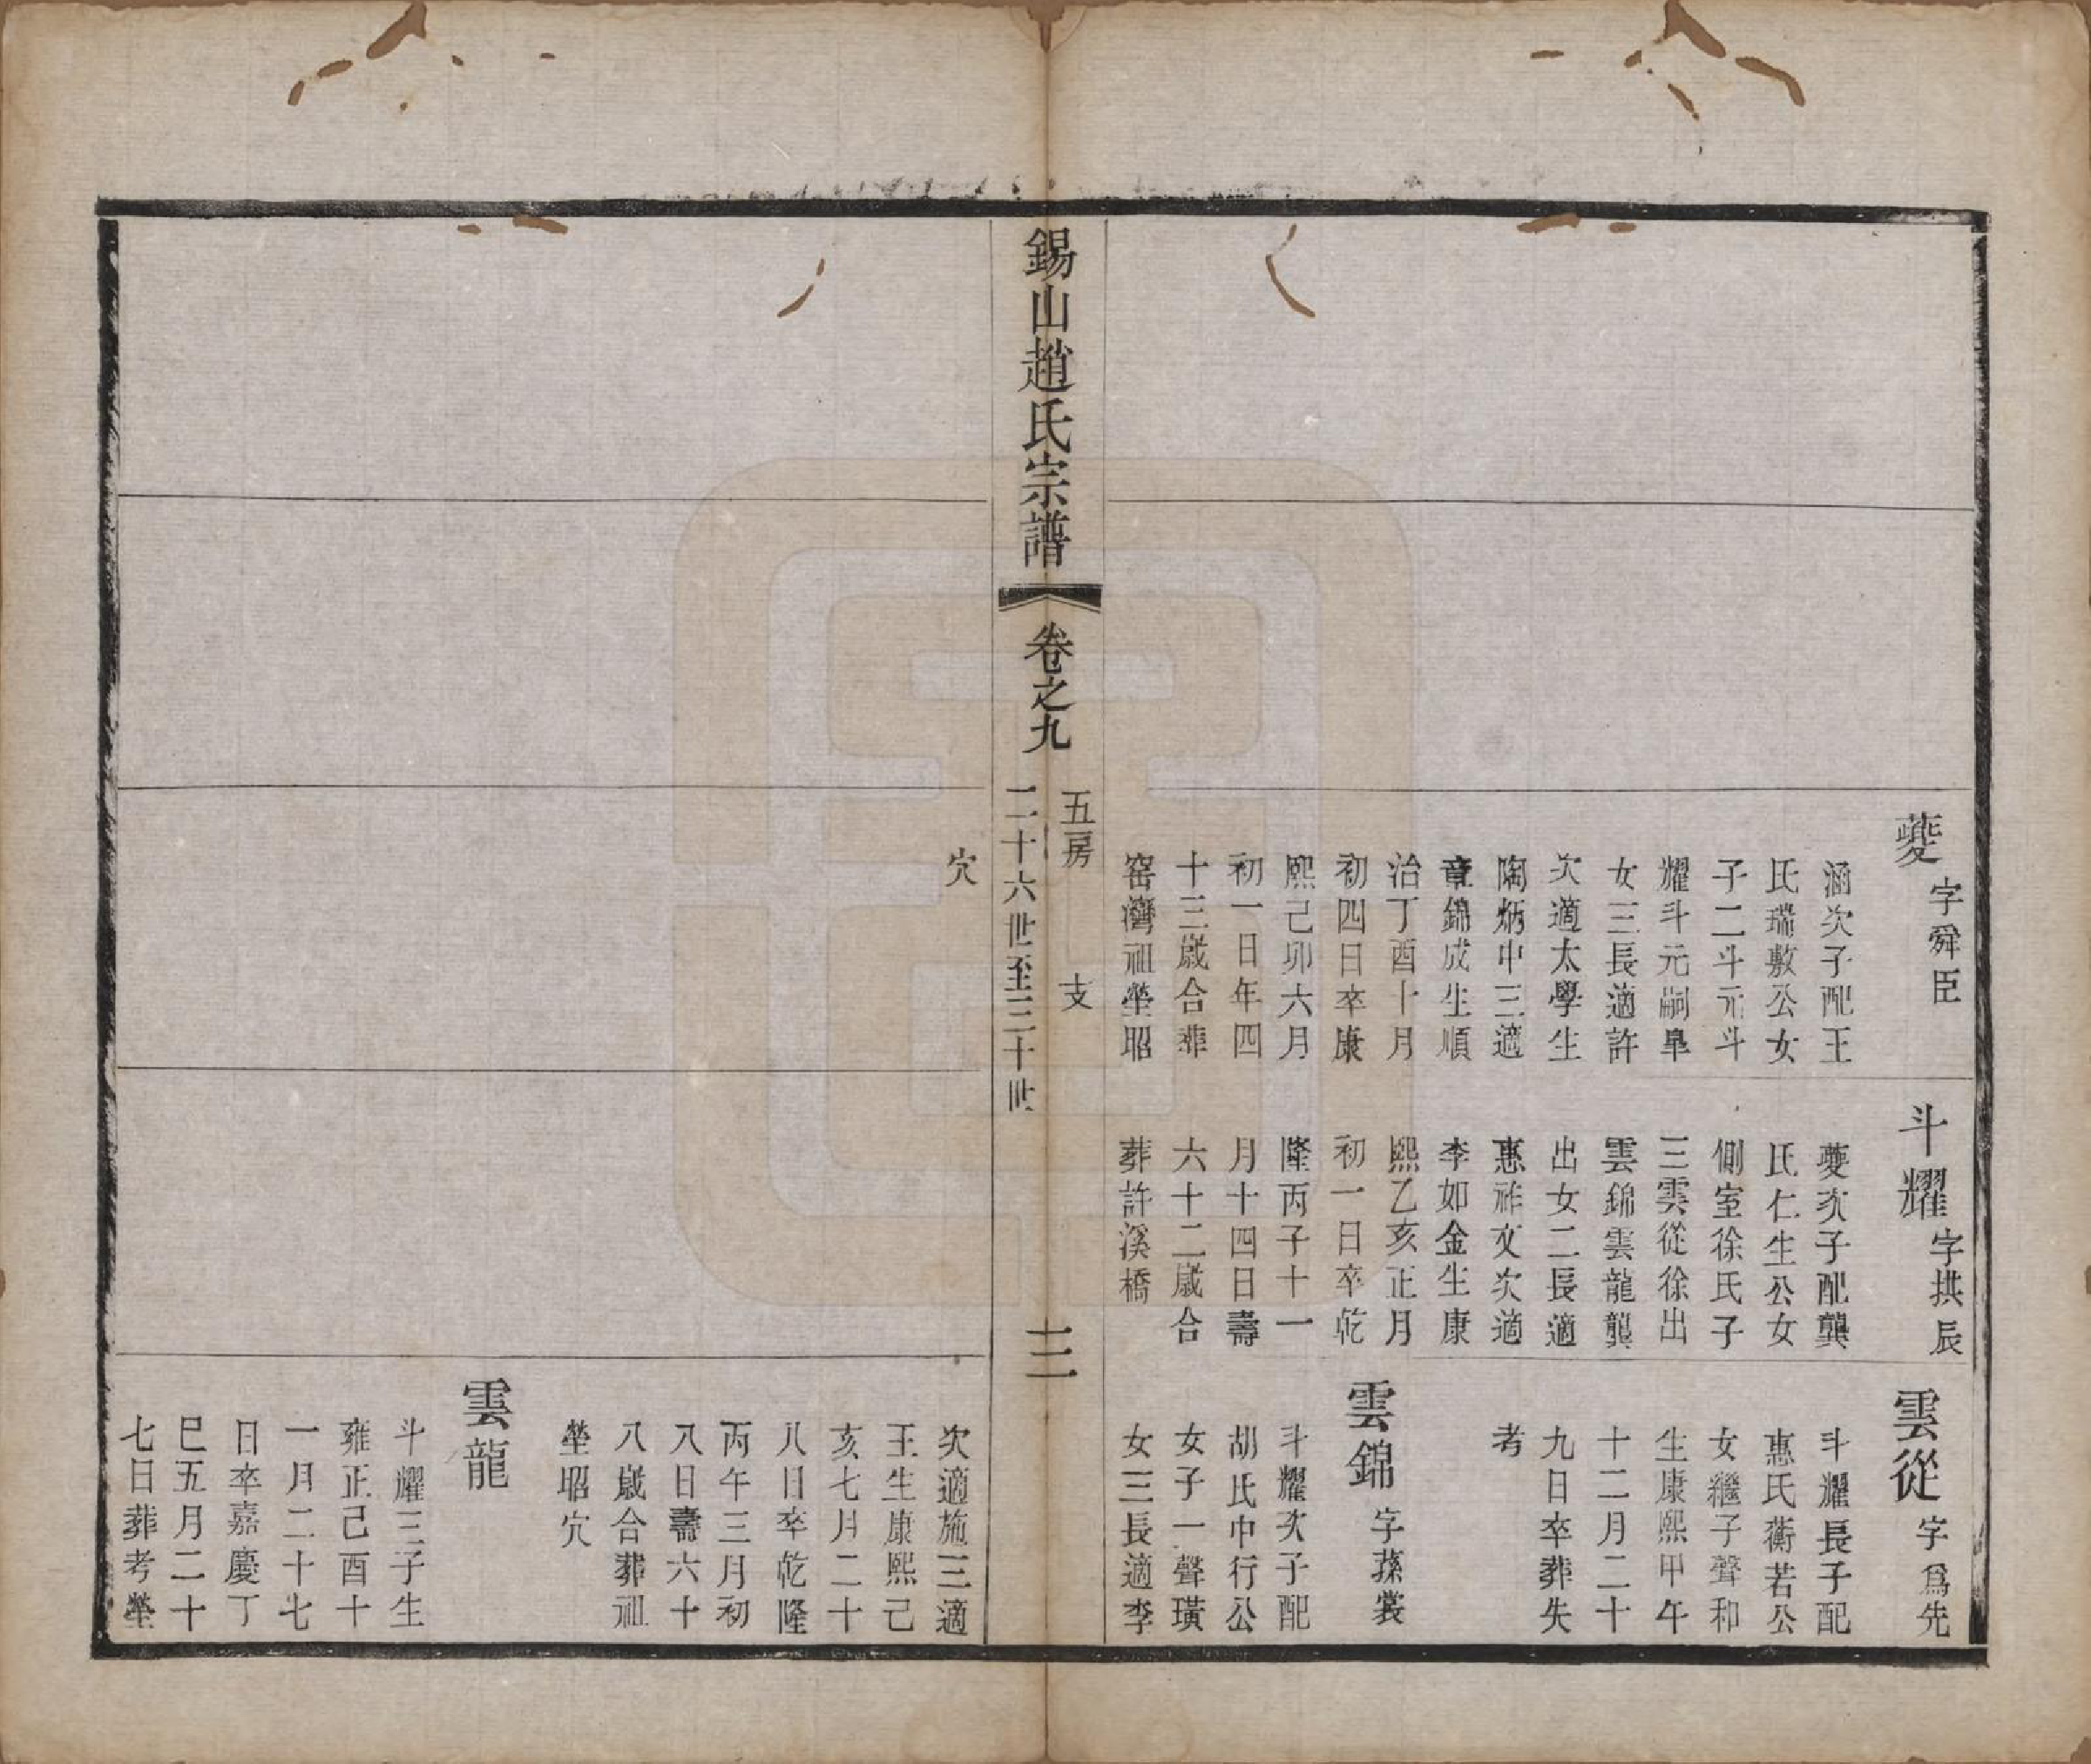 夔 字舜臣
涵次子配王
氏瑞敷公女
子二斗元斗
耀斗元嗣臯
女三長適許
次適太學生
陶炳中三適
章錦成生順
治丁酉十月
初四日卒康
熙己卯六月
初一日年四
十三歲合葬
窑灣祖塋昭
穴
斗耀 字拱辰
夔次子配龔
氏仁生公女
側室徐氏子
三雲從徐出
雲錦雲龍龔
出女二長適
惠祚文次適
李如金生康
熙乙亥正月
初一日卒乾
隆丙子十一
月十四日壽
六十二歲合
葬許溪橋
雲從 字爲先
斗耀長子配
惠氏蘅若公
女繼子聲和
生康熙甲午
十二月二十
九日卒葬失
考
雲錦 字蓀裳
斗耀次子配
胡氏中行公
女子一聲璜
女三長適李
次適施三適
王生康熙己
亥七月二十
八日卒乾隆
丙午三月初
八日壽六十
八歲合葬祖
塋昭穴
雲龍
斗耀三子生
雍正己酉十
一月二十七
日卒嘉慶丁
巳五月二十
七日葬考塋
錫山趙氏宗譜
卷之九
五房 支
二十六世至三十世
三